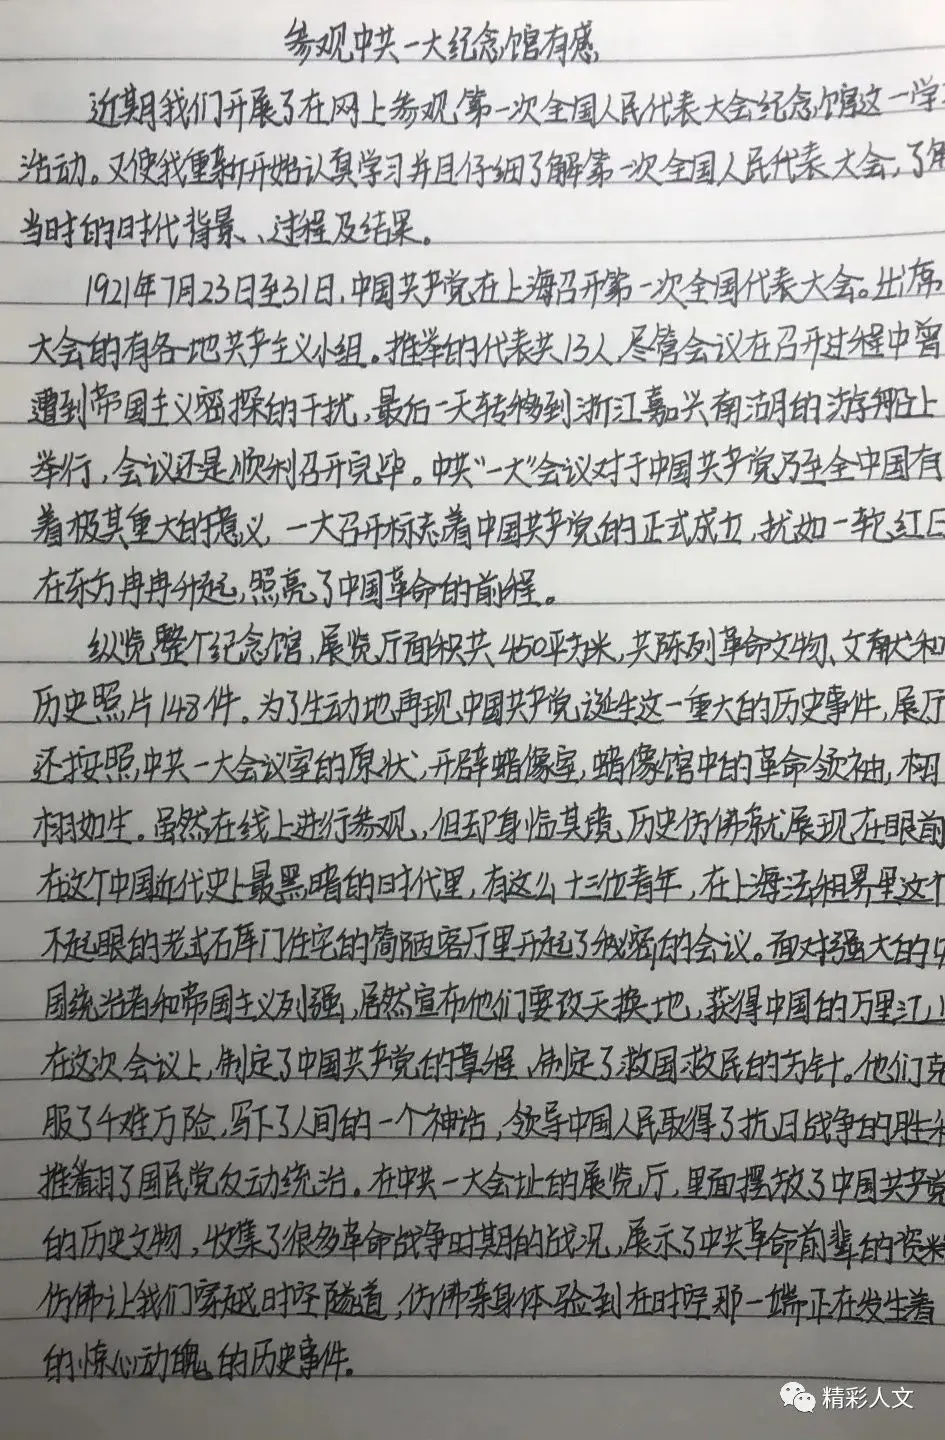 参观中共一大纪念馆有感
近期我们开展了在网上参观第一次全国人民代表大会纪念馆这一学
活动。又使我重新开始认真学习并且仔细了解第一次全国人民代表大会,了解
当时的时代背景、过程及结果。
1921年7月23日至31日,中国共产党在上海召开第一次全国代表大会。出席
大会的有各地共产主义小组。推举的代表共13人,尽管会议在召开过程中曾
遭到帝国主义密探的干扰,最后一天转移到浙江嘉兴南湖的游船上
举行,会议还是顺利召开完毕。中共“一大”会议对于中国共产党乃至全中国有
着极其重大的意义,一大召开标志着中国共产党的正式成立,犹如一轮红日
在东方冉冉升起,照亮了中国革命的前程。
纵览整个纪念馆,展览厅面积共450平方米,共陈列革命文物、文献和
历史照片148件。为了生动地再现中国共产党诞生这一重大的历史事件,展厅
还按照中共一大会议室的原状,开辟蜡像室,蜡像馆中的革命领袖,栩
栩如生。虽然在线上进行参观,但却身临其境,历史仿佛就展现在眼前
在这个中国近代史上最黑暗的时代里,有这么十三位青年,在上海法租界里这个
不起眼的老式石库门住宅的简陋客厅里开起了秘密的会议。面对强大的中
国统治者和帝国主义列强,居然宣布他们要改天换地,获得中国的万里江山
在这次会议上,制定了中国共产党的章程,制定了救国救民的方针。他们克
服了千难万险,写下了人间的一个神话,领导中国人民取得了抗日战争的胜利
推翻了国民党反动统治。在中共一大会址的展览厅,里面摆放了中国共产党
的历史文物,收集了很多革命战争时期的战况,展示了中共革命前辈的资料
仿佛让我们穿越时空隧道,仿佛亲身体验到在时空那一端正在发生着
的惊心动魄的历史事件。
精彩人文